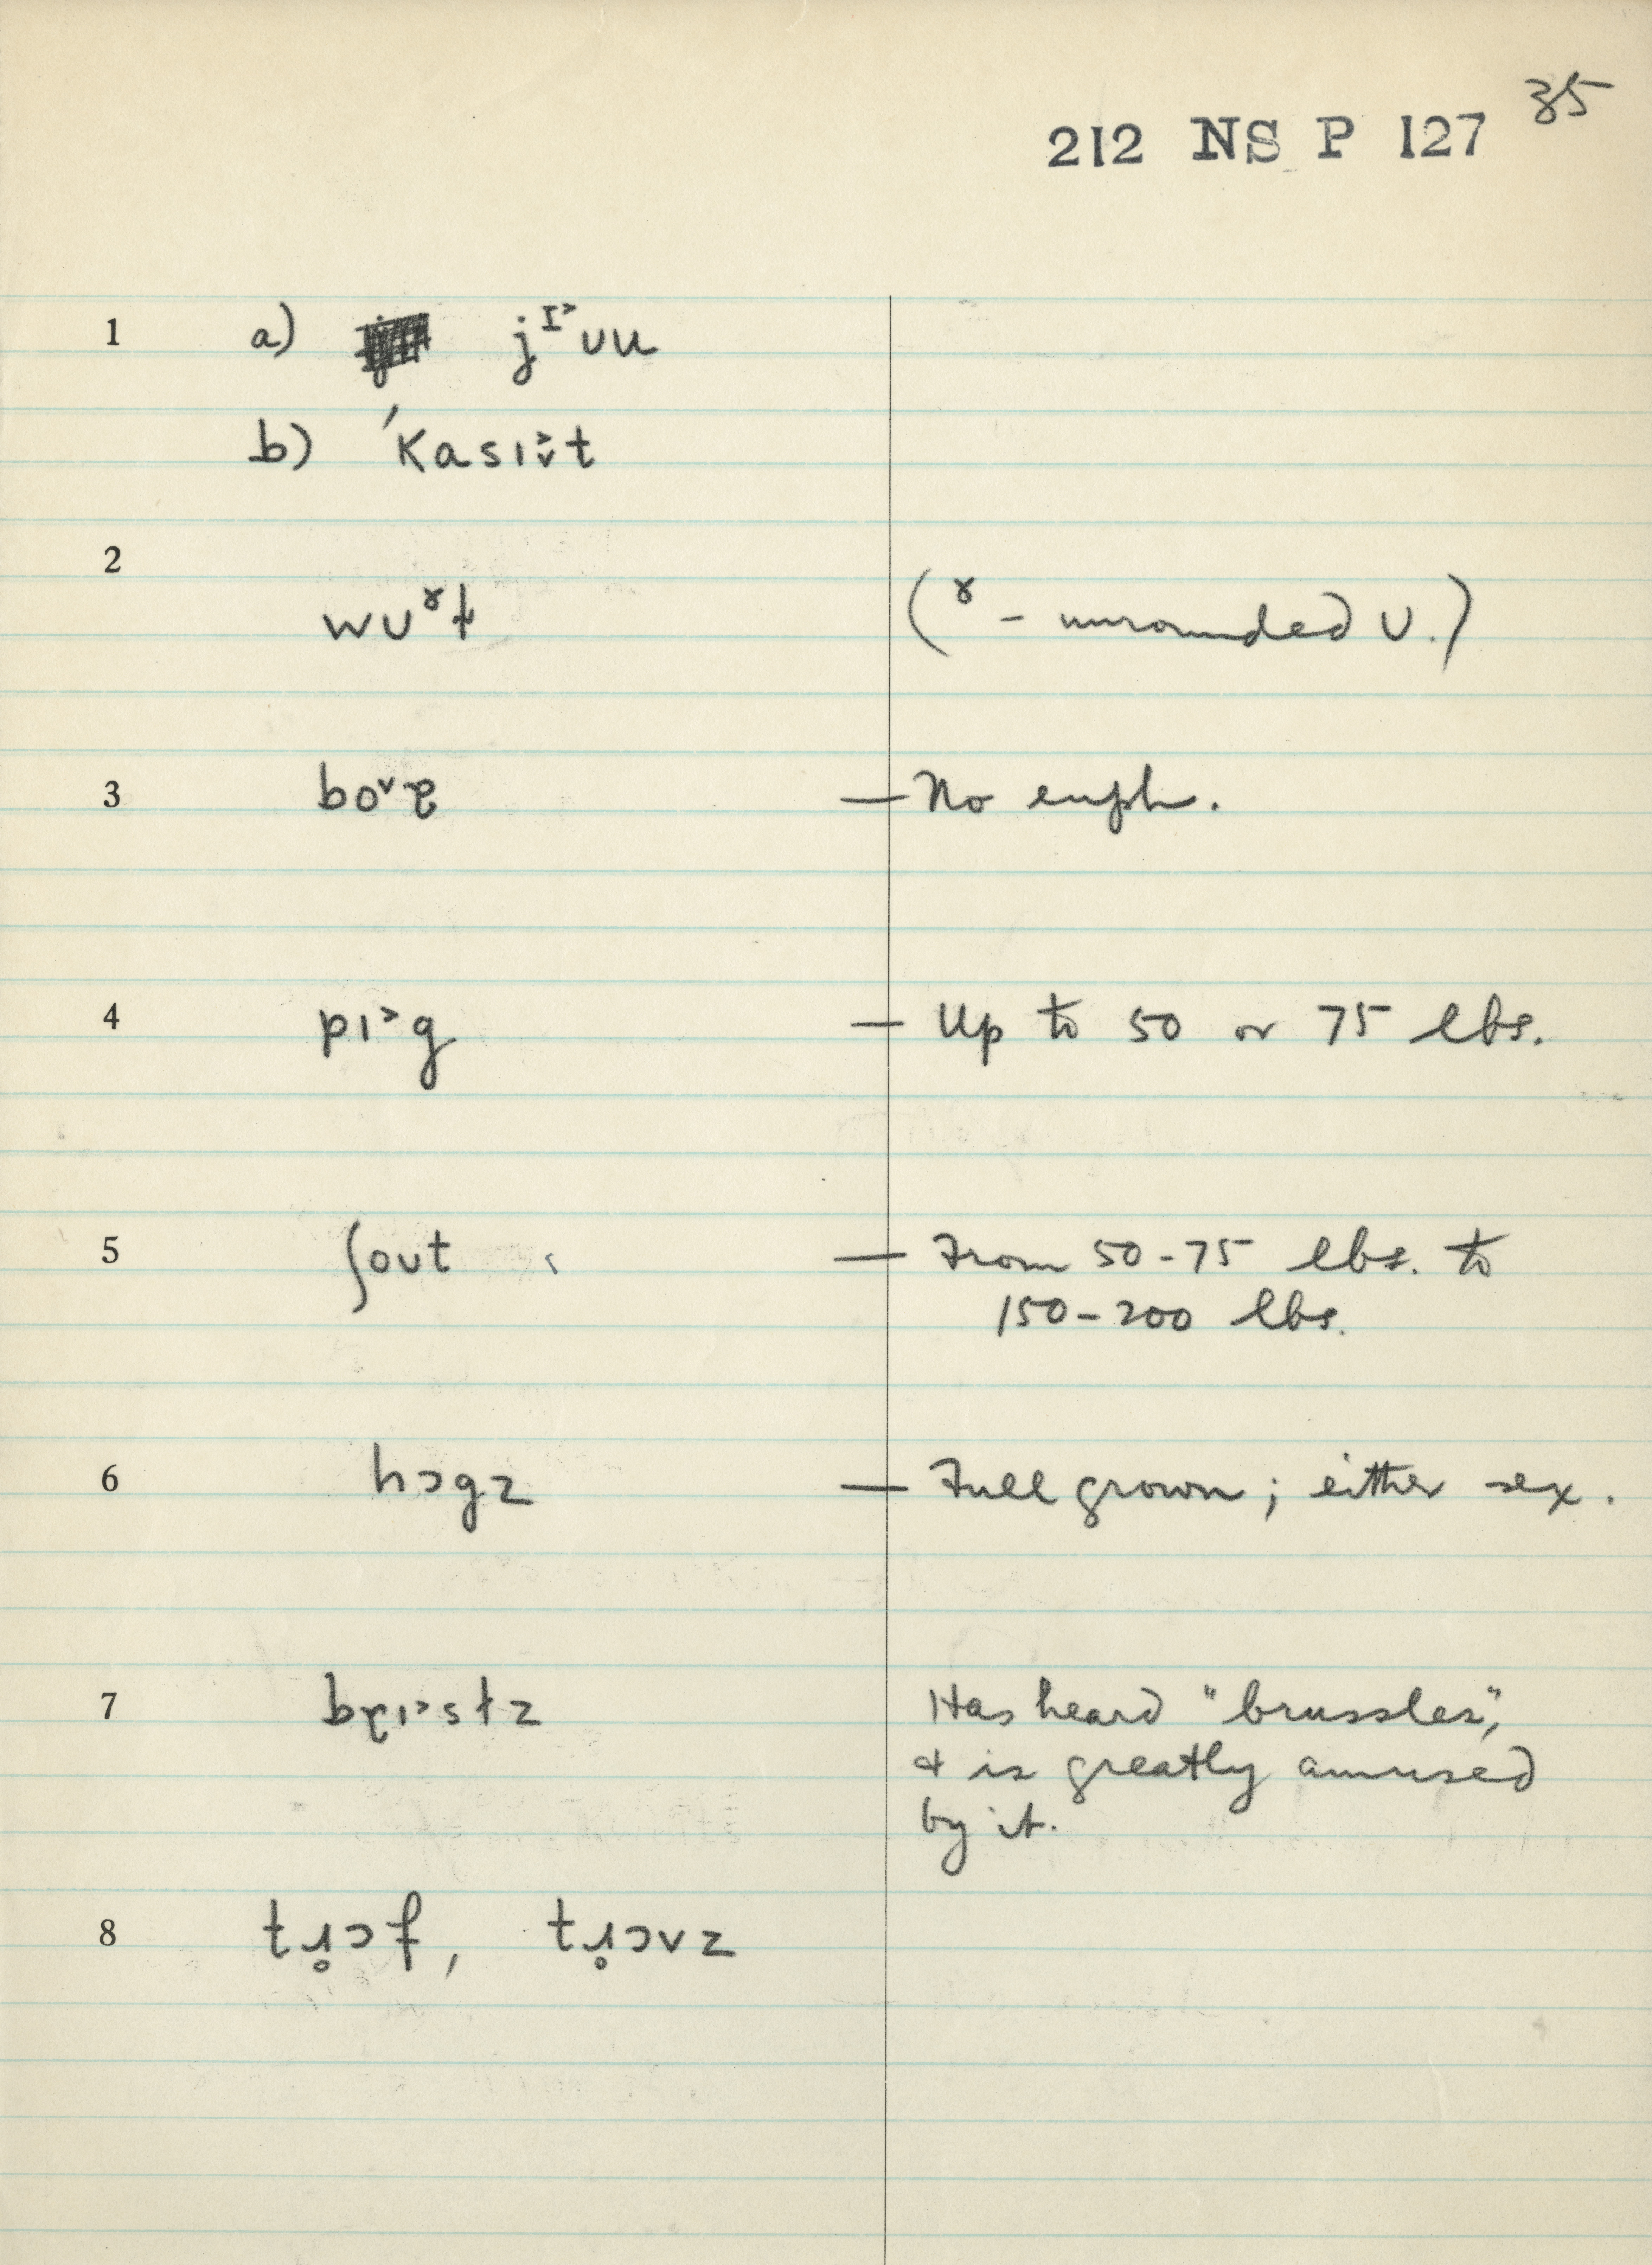 35
212 NS P 127
1 a) jᶦ˃ʊu
b) ˊKasɪ̬˃t
2
wʊˠɫ (ˠ – unrounded ʊ.)
3 bo˅ɐ — No euph.
4 pɪ˃g — Up to 50 or 75 lbs.
5 ʃoʊt — From 50-75 lbs. to
150-200 lbs.
6 hɔgz — Full grown; either sex.
7 bɪ˃sɫz Has heard "brussles",
& is greatly amused
by it.
8 tɹ̥ɔf, tɹ̥ɔvz